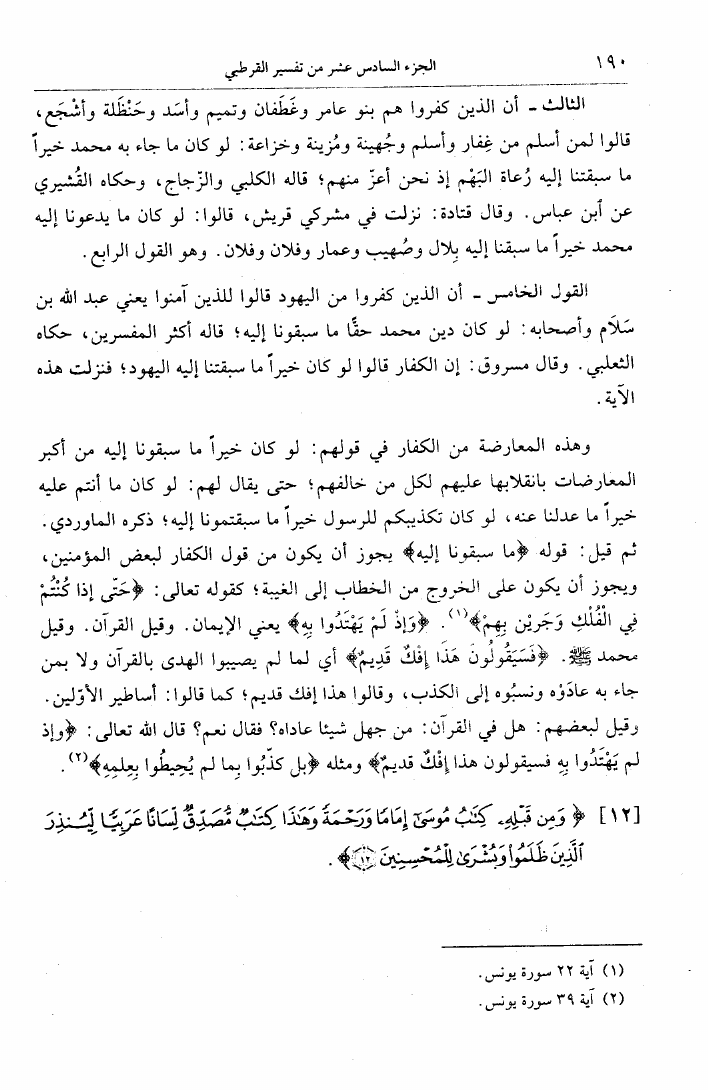 ١٩٠ الجزء السادس عشر من تفسير القرطبي
الثالث ـ أن الذين كفروا هم بنو عامر وغَطَفان وتميم وأسَد وحَنْظَلة وأشْجَع،
قالوا لمن أسلم من غِفار وأسلم وجُهينة ومُزينة وخزاعة: لو كان ما جاء به محمد خيراً
ما سبقتنا إليه رُعاة البَهْم إذ نحن أعزّ منهم؛ قاله الكلبي والزّجاج، وحكاه القُشيري
عن آبن عباس. وقال قتادة: نزلت في مشركي قريش، قالوا: لو كان ما يدعونا إليه
محمد خيراً ما سبقنا إليه بِلال وصُهيب وعمار وفلان وفلان. وهو القول الرابع.
القول الخامس ـ أن الذين كفروا من اليهود قالوا للذين آمنوا يعني عبد الله بن
سَلاَم وأصحابه: لو كان دين محمد حقًّا ما سبقونا إليه؛ قاله أكثر المفسرين، حكاه
الثعلبي. وقال مسروق: إن الكفار قالوا لو كان خيراً ما سبقتنا إليه اليهود؛ فنزلت هذه
الآية.
وهذه المعارضة من الكفار في قولهم: لو كان خيراً ما سبقونا إليه من أكبر
المعارضات بانقلابها عليهم لكل من خالفهم؛ حتى يقال لهم: لو كان ما أنتم عليه
خيراً ما عدلنا عنه، لو كان تكذيبكم للرسول خيراً ما سبقتمونا إليه؛ ذكره الماوردي.
ثم قيل: قوله ﴿ما سبقونا إليه﴾ يجوز أن يكون من قول الكفار لبعض المؤمنين،
ويجوز أن يكون على الخروج من الخطاب إلى الغيبة؛ كقوله تعالى: ﴿حَتّى إذا كُنْتُمْ
فِي الْفُلْكِ وَجَرَيْن بِهِمْ﴾(١). ﴿وَإذْ لَمْ يَهْتَدُوا بِهِ﴾ يعني الإيمان. وقيل القرآن. وقيل
محمد ﷺ. ﴿فَسَيَقُولُونَ هَذَا إفْكٌ قَدِيمٌ﴾ أي لما لم يصيبوا الهدى بالقرآن ولا بمن
جاء به عادَوْه ونسبُوه إلى الكذب، وقالوا هذا إفك قديم؛ كما قالوا: أساطير الأوّلين.
وقيل لبعضهم: هل في القرآن: من جهل شيئا عاداه؟ فقال نعم؟ قال الله تعالى: ﴿وإذ
لم يَهْتَدُوا بِهِ فسيقولون هذا إفْكٌ قديمٌ﴾ ومثله ﴿بل كذّبوا بِما لم يُحيطُوا بِعِلمِهِ﴾(٢).
[١٢] ﴿وَمِن قَبْلِهِۦ كِتَٰبُ مُوسَىٰٓ إِمَامًا وَرَحْمَةً وَهَٰذَا كِتَٰبٌ مُّصَدِّقٌ لِّسَانًا عَرَبِيًّا لِّيُنذِرَ
ٱلَّذِينَ ظَلَمُوا۟ وَبُشْرَىٰ لِلْمُحْسِنِينَ ١٢﴾.
(١) آية ٢٢ سورة يونس.
(٢) آية ٣٩ سورة يونس.